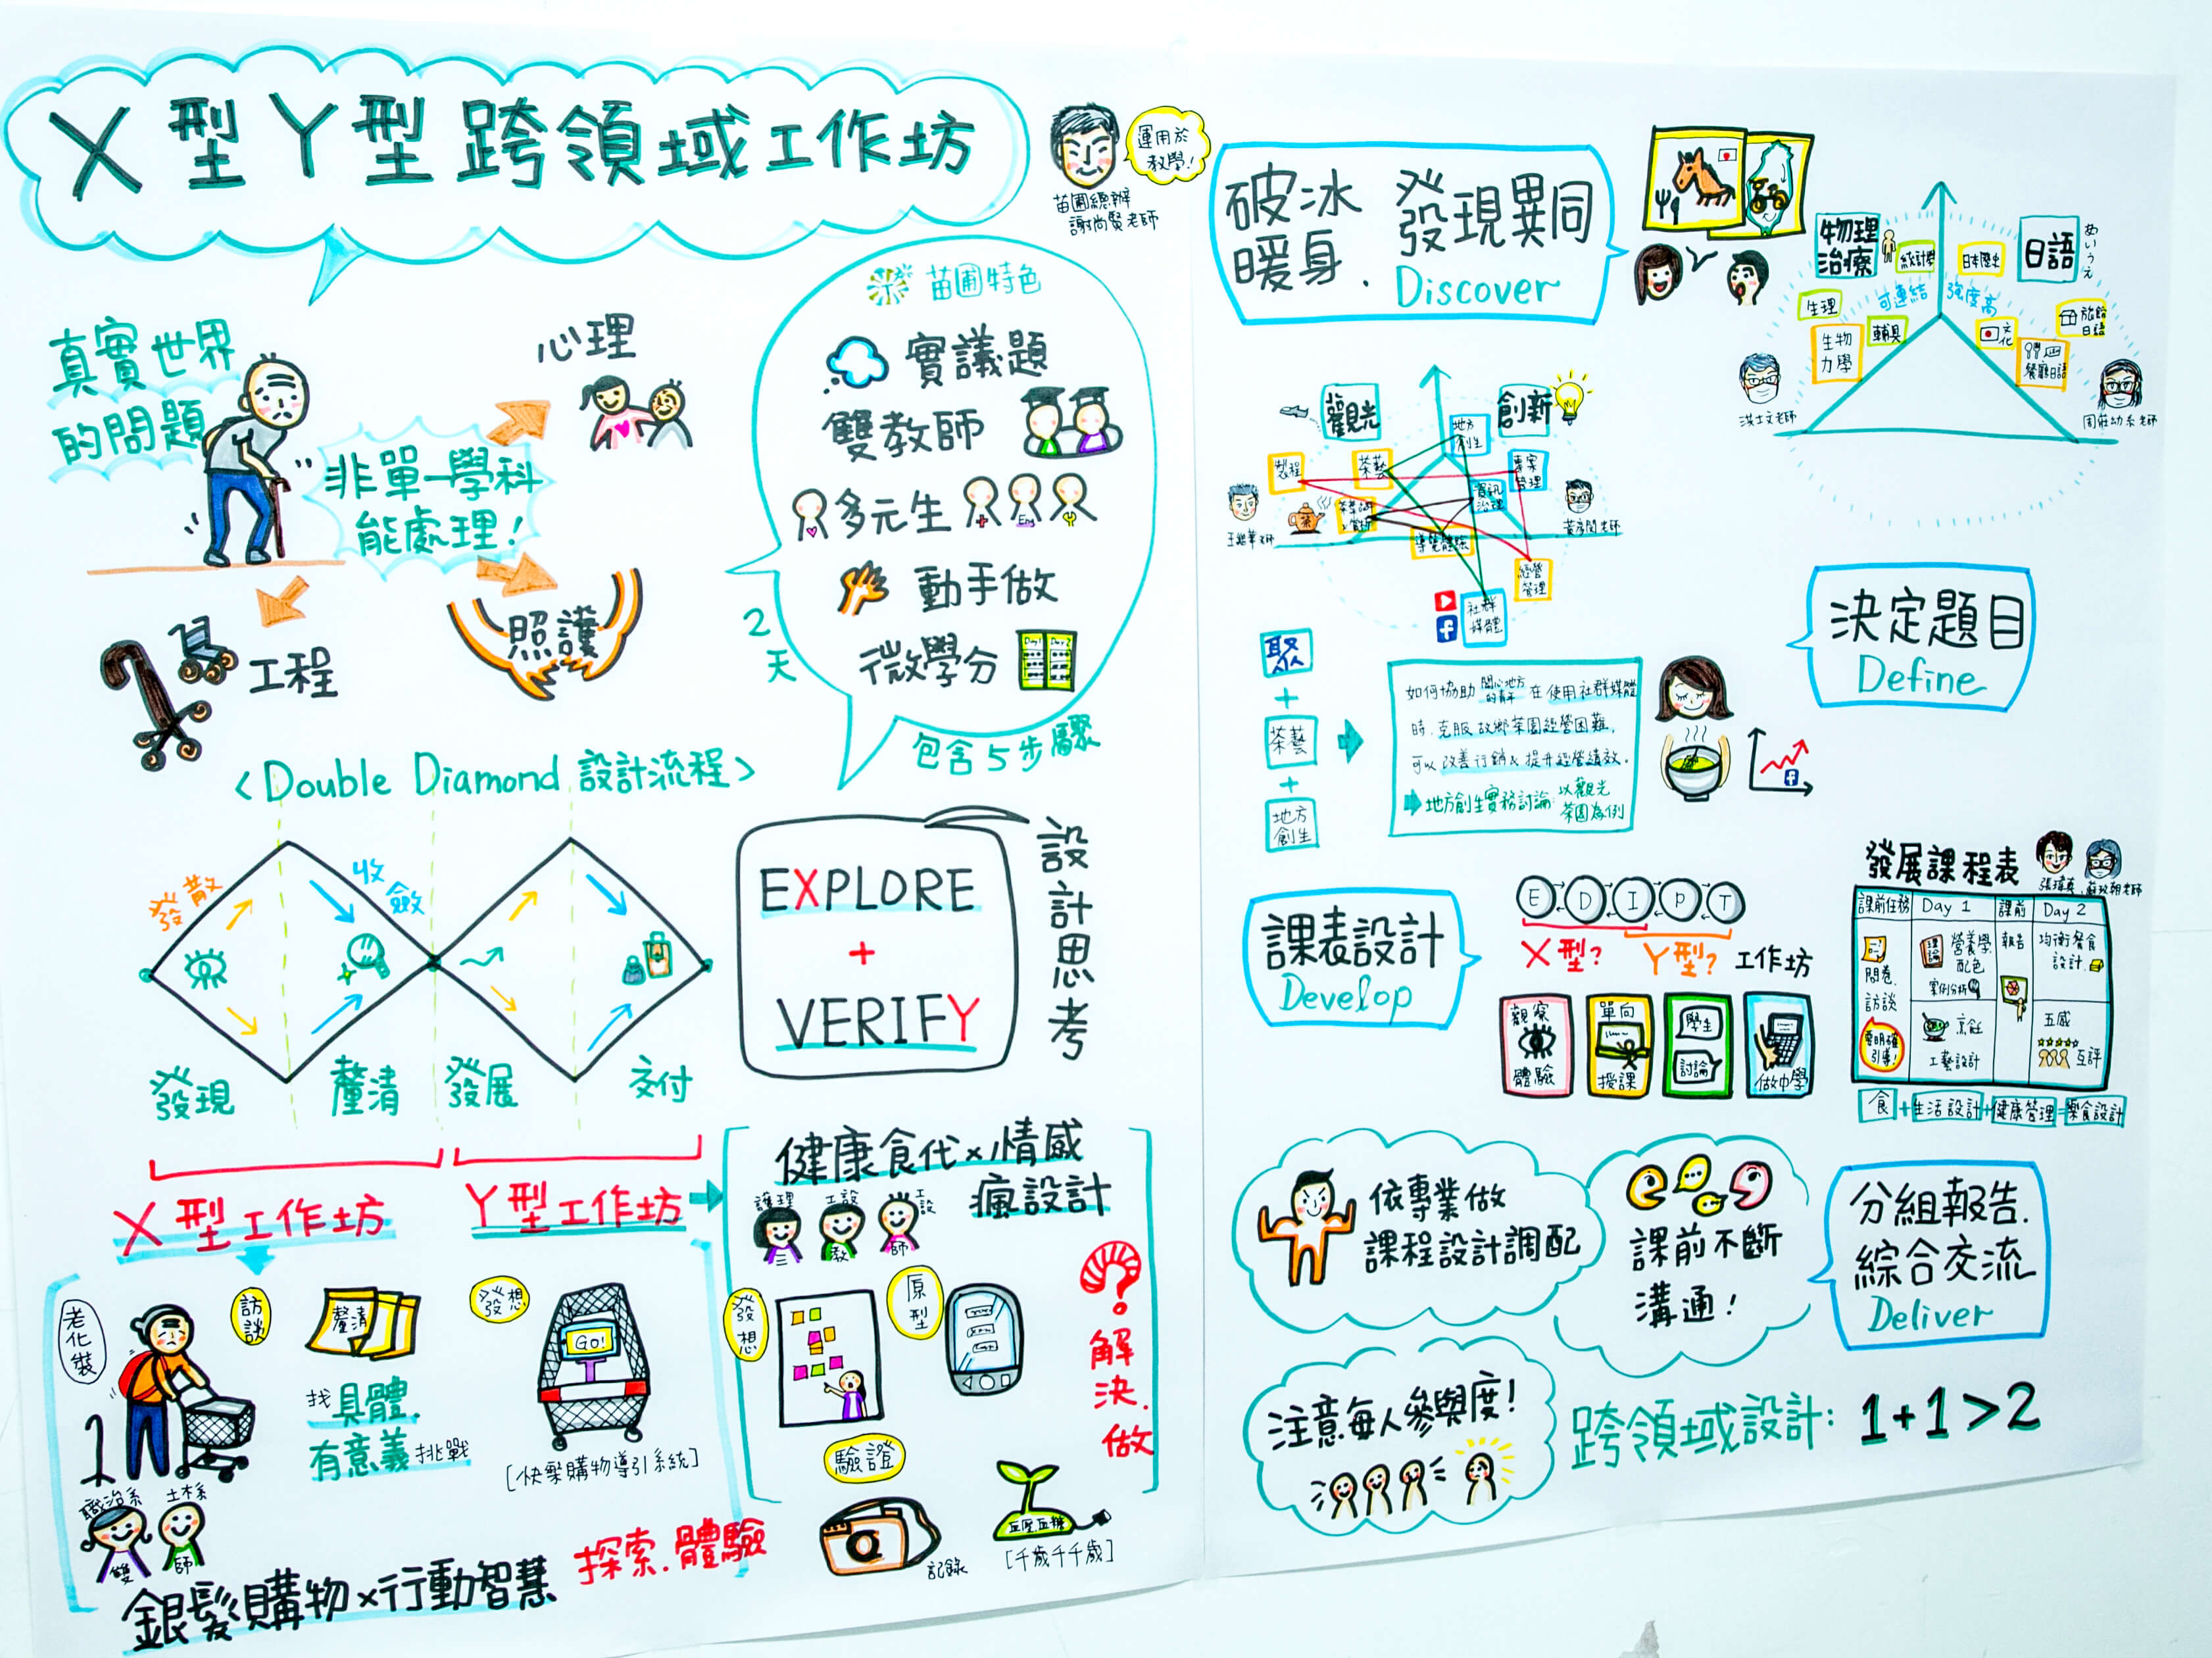 X型Y型跨領域工作坊
運用於
教學!
苗圃總辦
謝尚賢老師
真實世界
的問題
非單一學科
能處理!
心理
照護
工程
苗圃特色
實議題
雙教師
多元生
Eng
動手做
微學分
Day1 Day2
2
天
包含5步驟
<Double Diamond 設計流程>
發散
收斂
發現
釐清
發展
交付
EXPLORE
+
VERIFY
設計思考
X型工作坊
Y型工作坊
老化裝
訪談
釐清
找具體.
有意義挑戰
發想
Go!
[快聚購物導引系統]
職治系
土木系
雙
師
銀髮購物×行動智慧
探索.體驗
健康食代×情感
瘋設計
護理
工設
工設
三
教
師
發想
原型
驗證
記錄
血壓.血糖
[千歲千千歲]
解決.做
破冰
暖身.
發現異同
Discover
物理
治療
統計學
日本歷史
日語
あいうえ
生理
可連結
強度高
生物
力學
輔具
文化
旅館
日語
餐廳日語
洪士文老師
周莊幼系老師
觀光
創新
地方
創生
製程
茶藝
專案
管理
資訊
治理
導覽體驗
經營
管理
社群
媒體
茶
決定題目
Define
聚
+
茶藝
+
地方
創生
如何協助關心地方的青年在使用社群媒體
時,克服故鄉茶園經營困難,
可以改善行銷&提升經營績效.
地方創生實務討論:以觀光
茶園為例
課表設計
Develop
E D I P T
X型? Y型? 工作坊
觀察
體驗
單向
授課
學生
討論
做中學
發展課程表
課前任務 Day 1 課前 Day 2
問卷.
訪談
要明確
引導!
理論
營養學
配色
案例分析
烹飪
工藝設計
報告
均衡餐食
設計.
五感
互評
食+生活設計+健康管理=樂食設計
依專業做
課程設計調配
課前不斷
溝通!
分組報告.
綜合交流
Deliver
注意每人參與度!
跨領域設計: 1+1>2